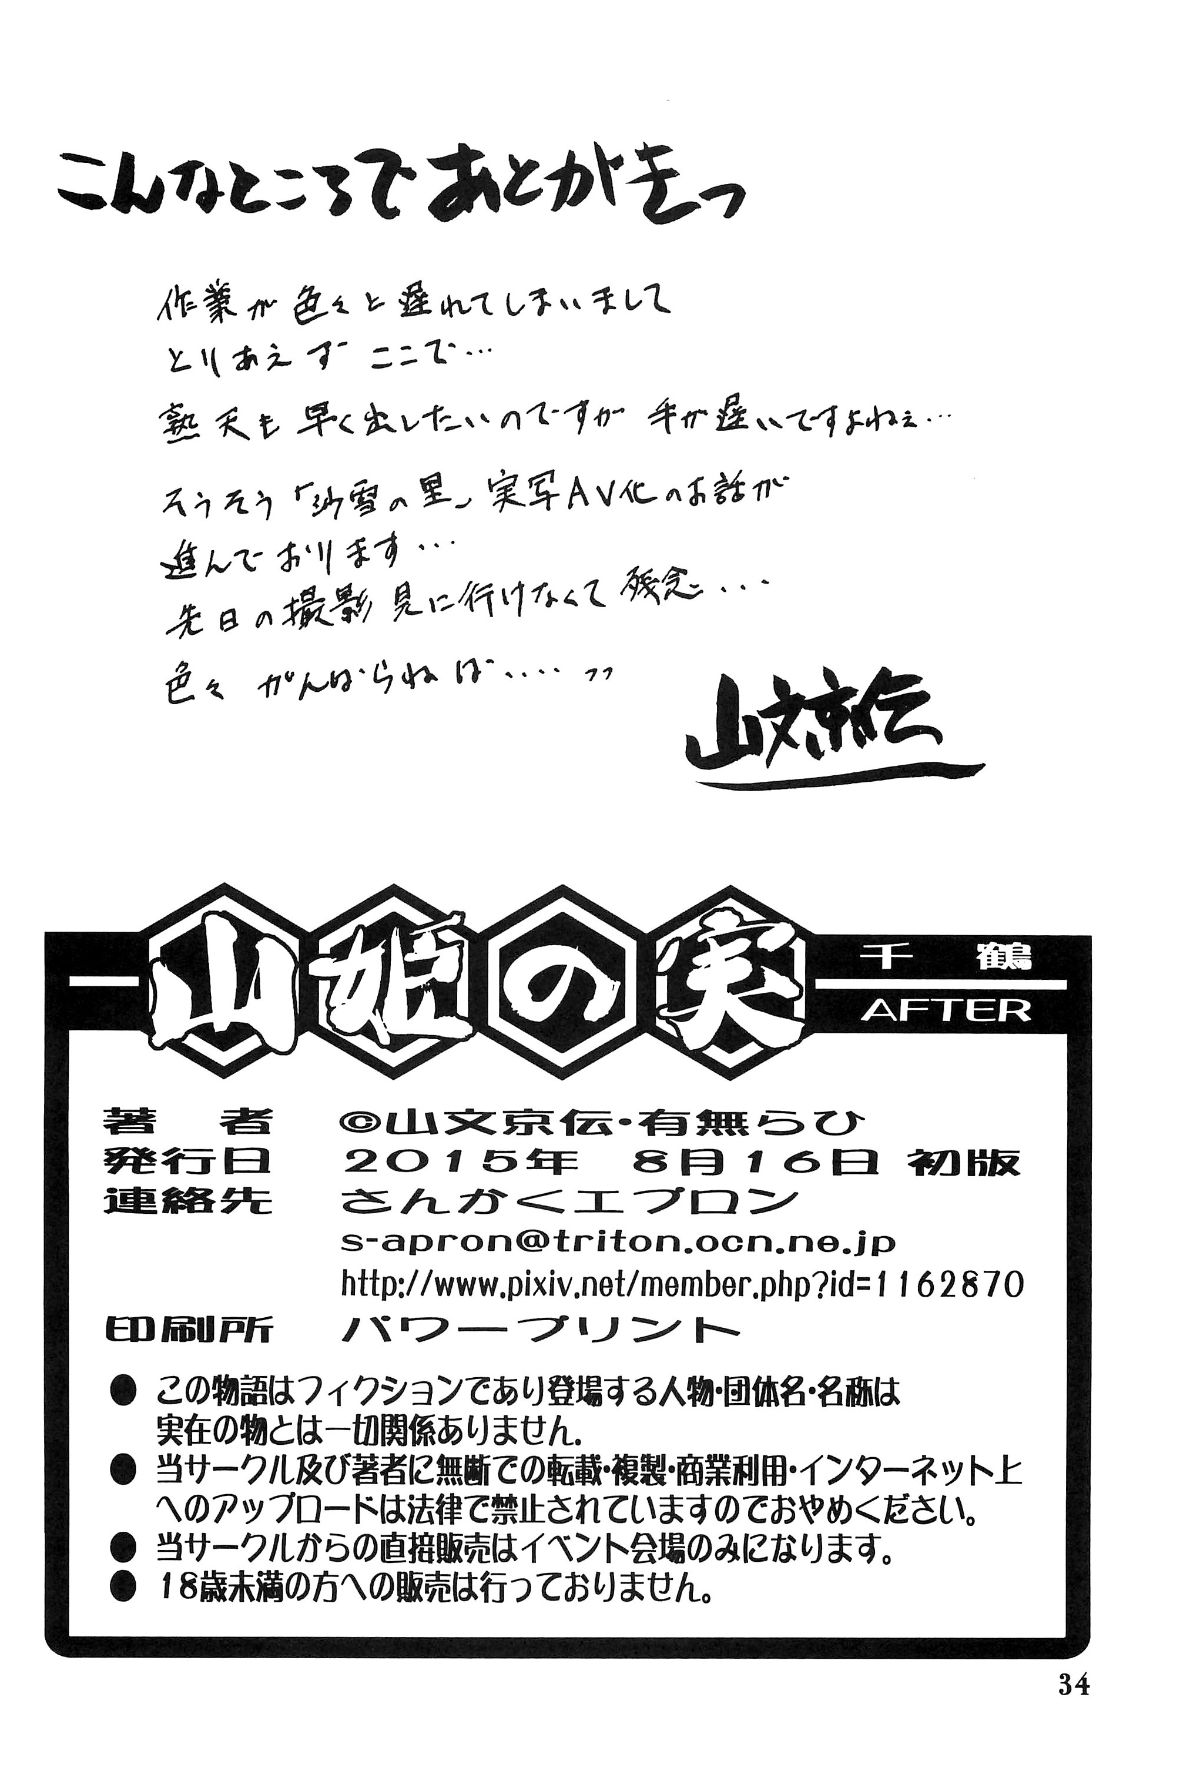 こんなところであとがきっ
作業が色々と遅れてしまいまして
とりあえず ここで…
熟天も 早く出したいのですが 手が遅いですよねぇ…
そうそう「沙雪の里」実写AV化のお話が
進んでおります…
先日の撮影見に行けなくて 残念…
色々 がんばらねば…. ッッ
山文京伝
山姫の実
千鶴
AFTER
著者 ©山文京伝・有無らひ
発行日 2015年 8月16日 初版
連絡先 さんかくエプロン
s-apron@triton.ocn.ne.jp
http://www.pixiv.net/member.php?id=1162870
印刷所 パワープリント
● この物語はフィクションであり登場する人物・団体名・名称は
実在の物とは一切関係ありません.
● 当サークル及び著者に無断での転載・複製・商業利用・インターネット上
へのアップロードは法律で禁止されていますのでおやめください。
● 当サークルからの直接販売はイベント会場のみになります。
● 18歳未満の方への販売は行っておりません。
34